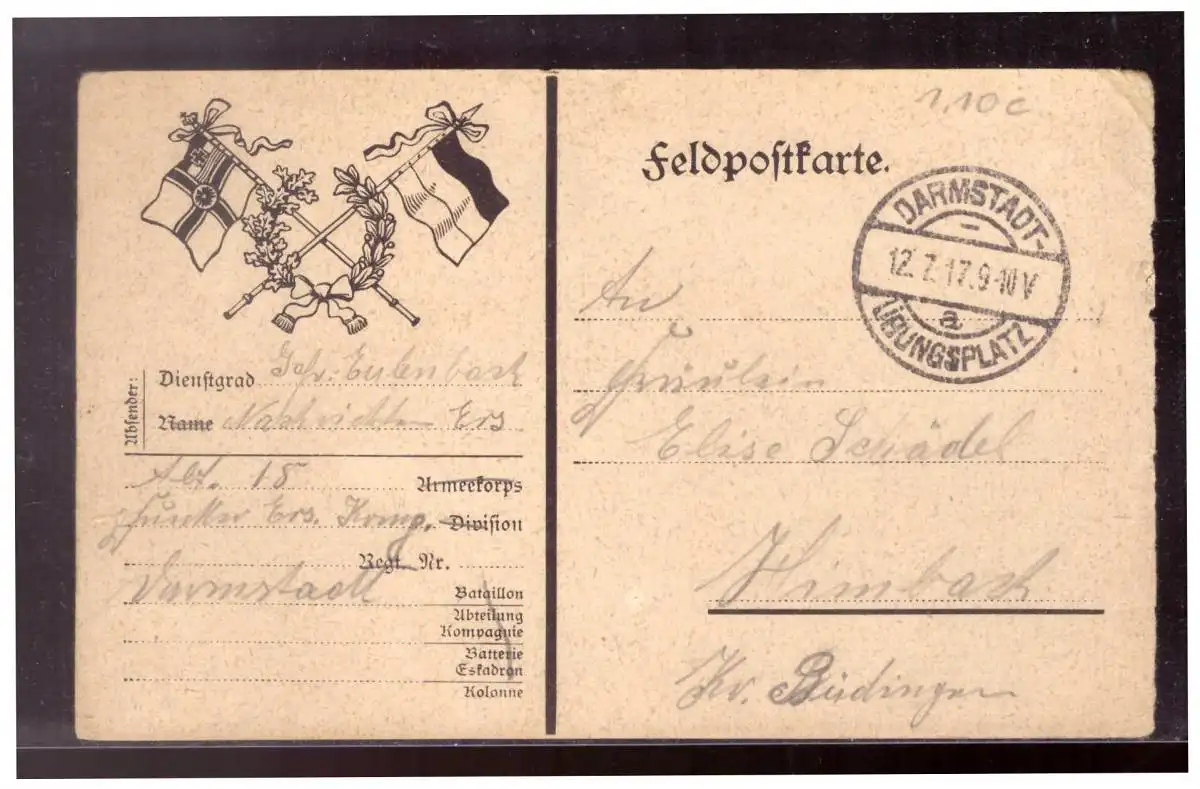 Absender:
Dienstgrad Gefr. Eulenbach
Name Nachrichten Ers
Abt. 18 Armeekorps
Funker Ers. Komp. Division
Regt. Nr.
Darmstadt
Bataillon
Abteilung
Kompagnie
Batterie
Eskadron
Kolonne
1,10 c
Feldpostkarte.
DARMSTADT-
12.7.17.9-10V
a
ÜBUNGSPLATZ
An
Fräulein
Elise Schädel
Himbach
Kr. Büdingen